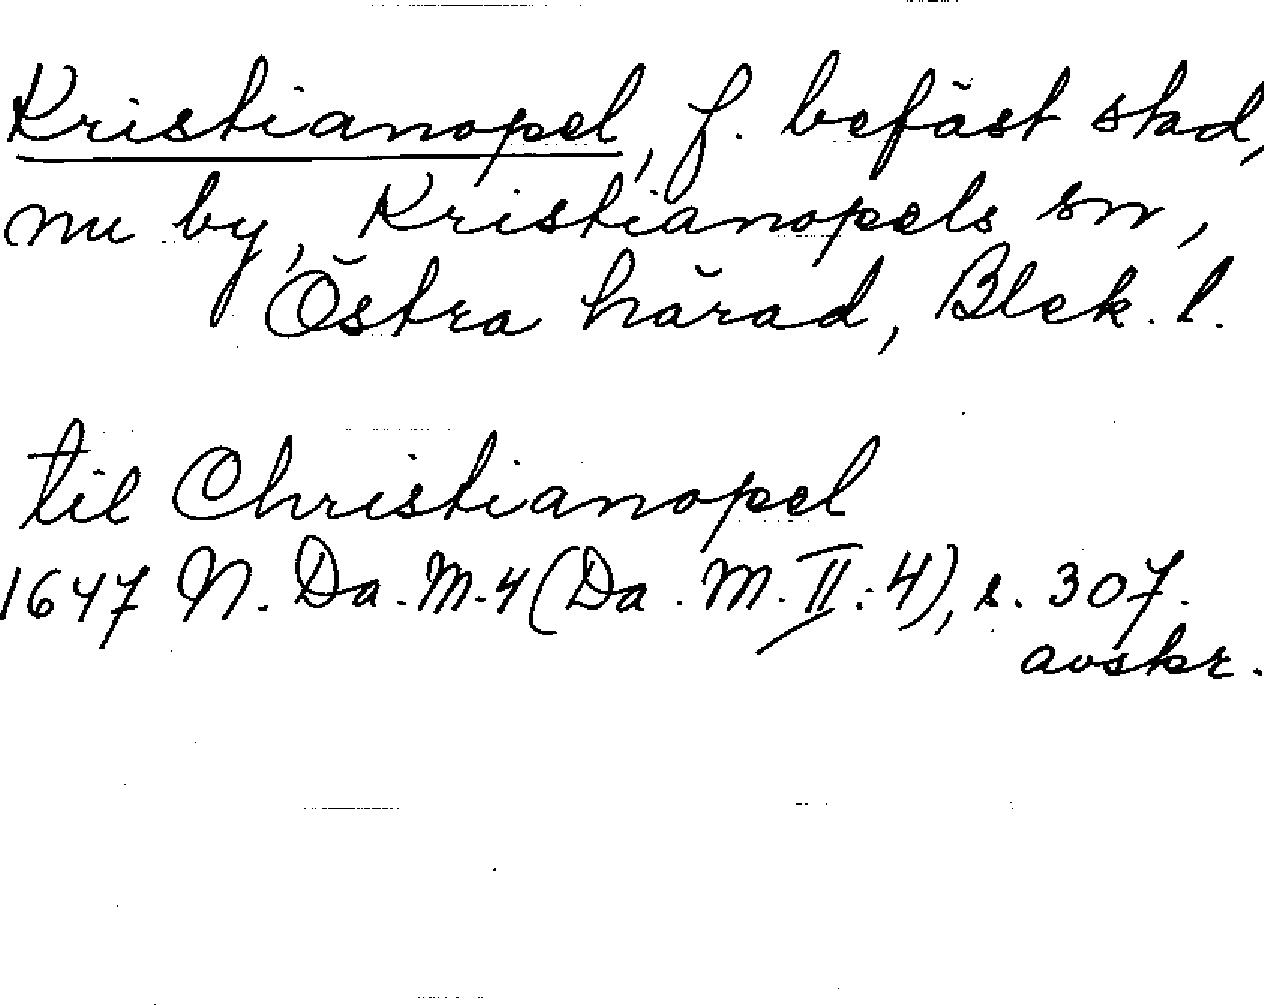 Kristianopel, f. befäst stad,
nu by, Kristianopels sn,
Östra härad, Blek. l.
til Christianopel
1647 N. Da. M. 4 (Da. M. II: 4), s. 307.
avskr.